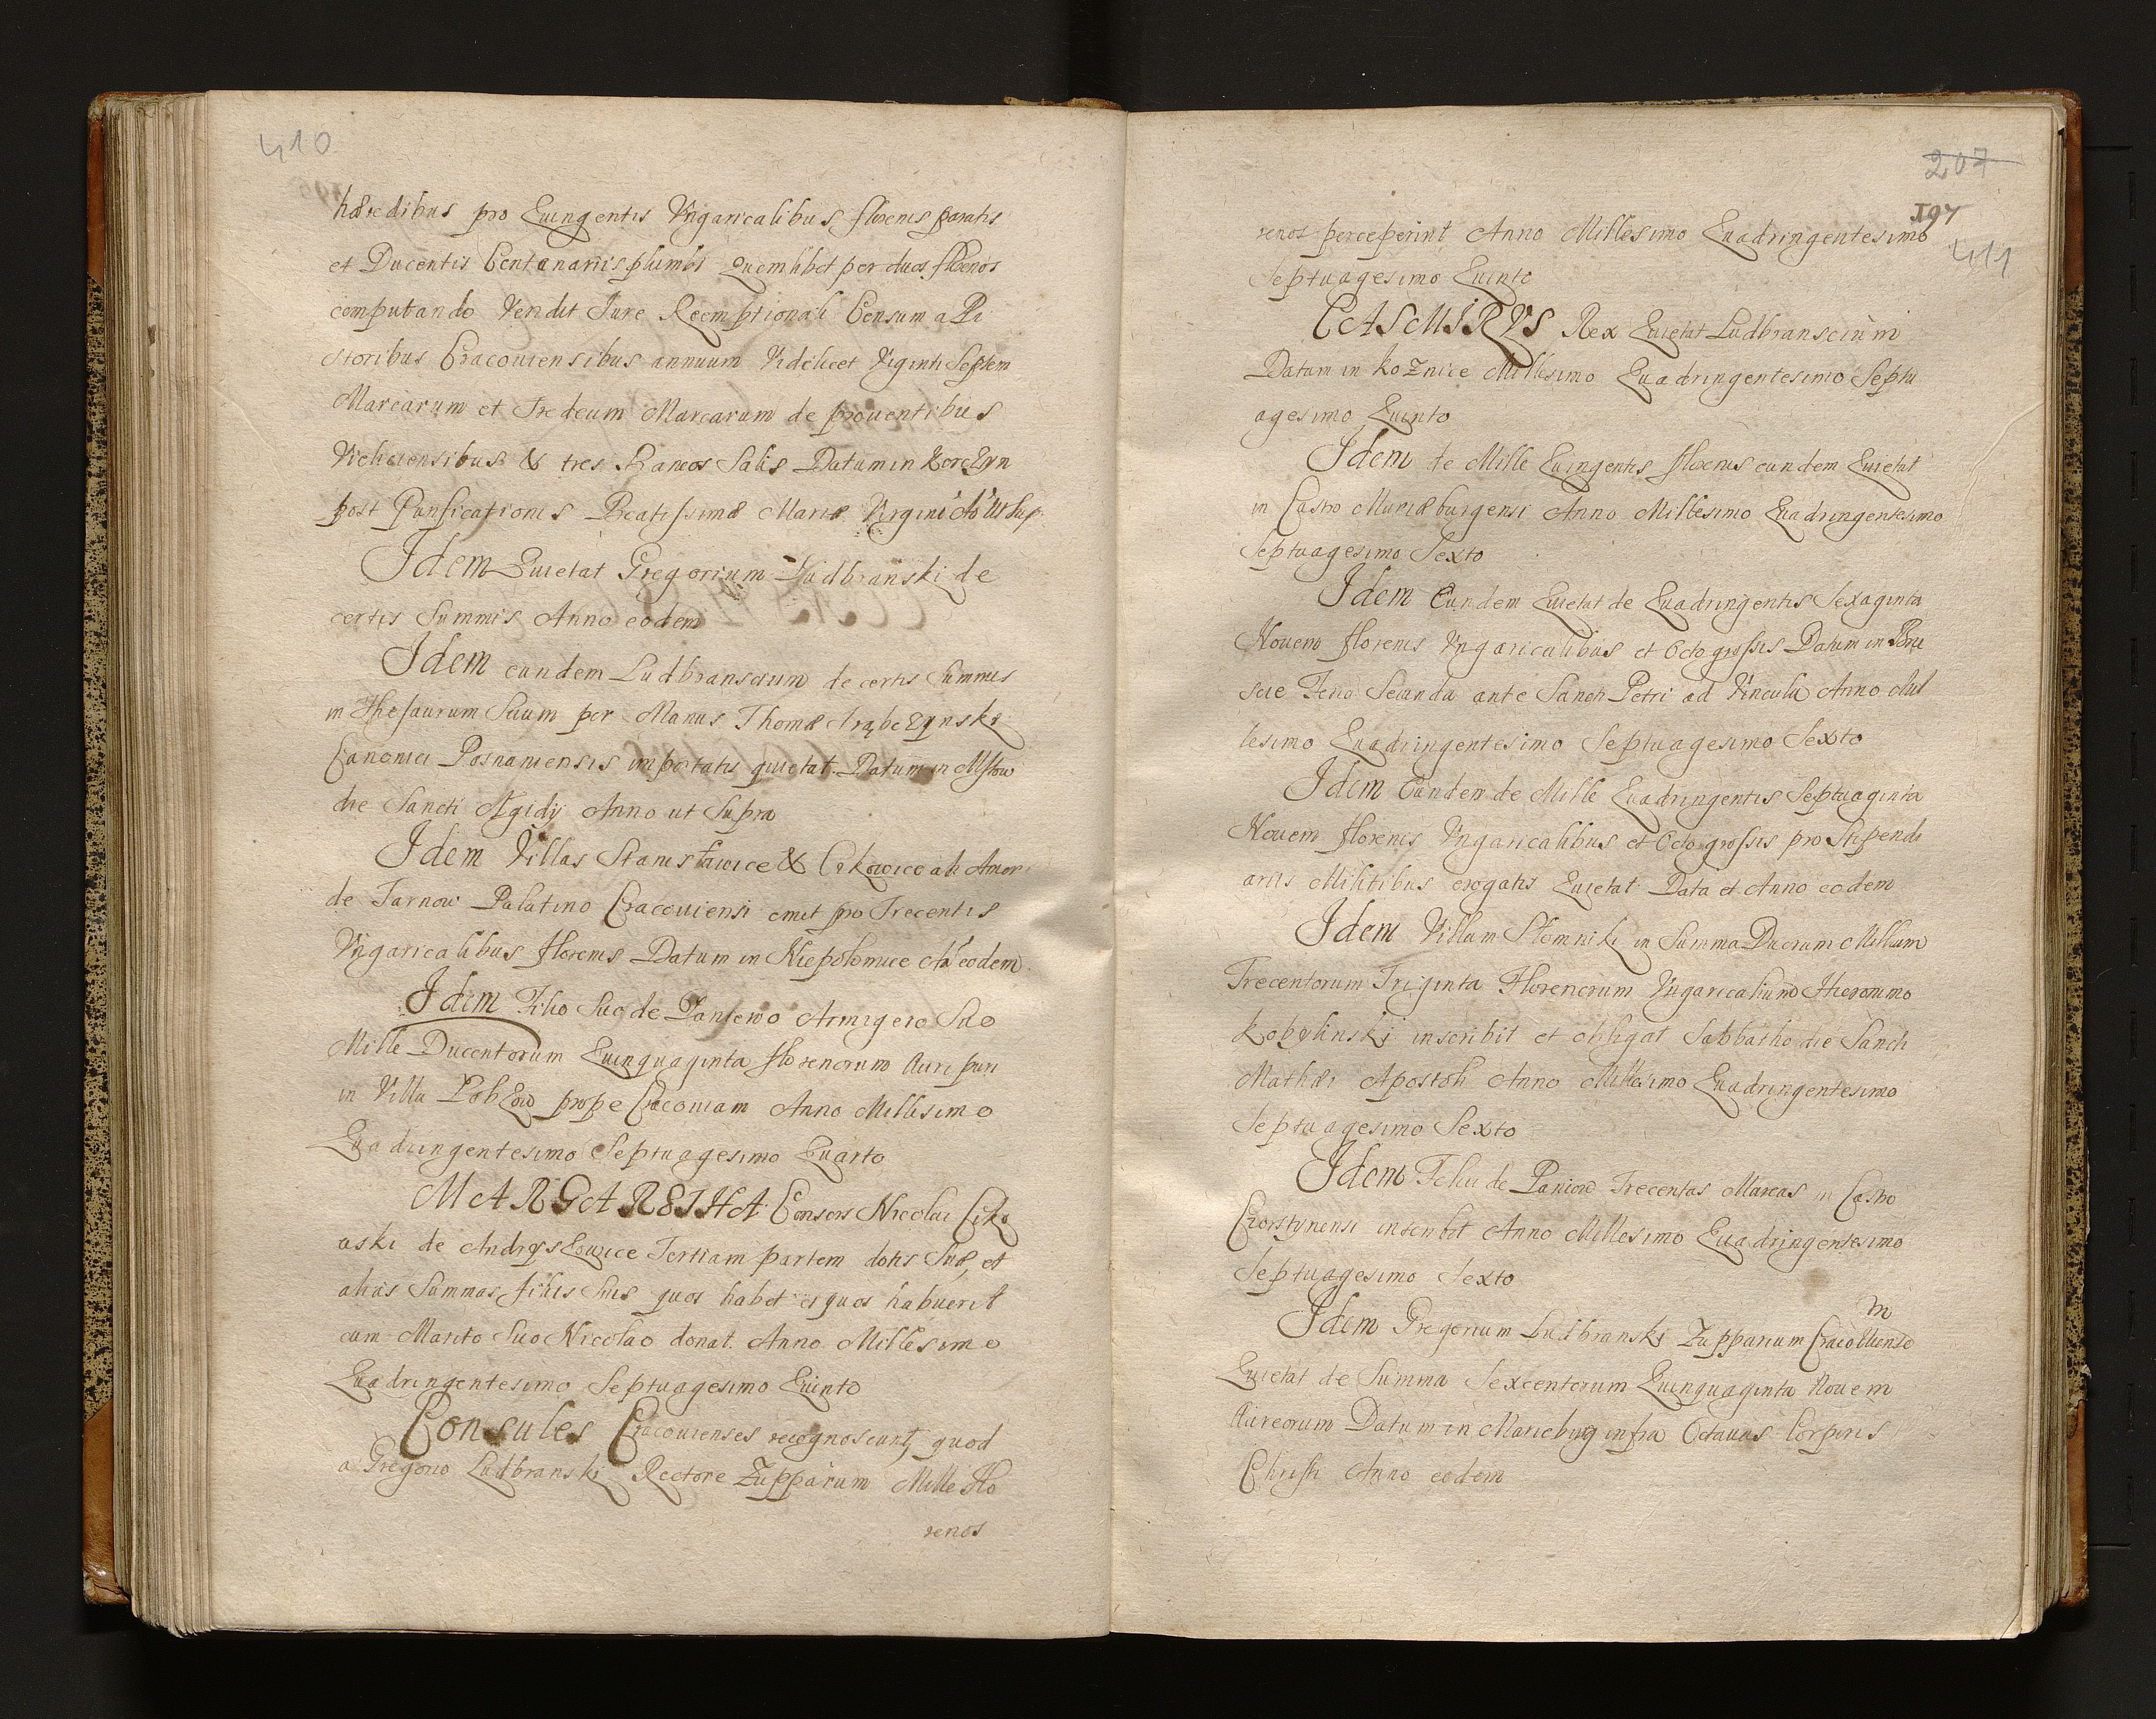 410
hæredibus pro Quingentis Vngaricalibus florenis paratis
et Ducentis Centenariis plumbi Quemlibet per duos florenos
computando Vendit Jure Reemptionali Censum a Pi
storibus Cracouiensibus annuum Videlicet Viginti Septem
Marcarum et Tredecim Marcarum de prouentibus
Vieliciensibus & tres Bancos Salis Datum in Korczyn
post Purificationis Beatissimæ Mariæ Virginis Aō ut Sup
Idem Quietat Gregorium Ludbranski de
certis Summis Anno eodem
Idem eundem Ludbranscium de certis Summis
in Thesaurum Suum per Manus Thomæ Trąbczynski
Canonici Posnaniensis importatis quietat Datum in Mstow
die Sancti Ægidij Anno ut Supra
Idem Villas Stanisławice & Cikowice ab Amor
de Tarnow Palatino Cracouiensi emit pro Trecentis
Vngaricalibus florenis Datum in Niepołomice Aō eodem
Idem Filio Suo de Paniewo Armigero Suo
Mille Ducentorum Quinquaginta florenorum Auri puri
in Villa Łobzow prope Cracouiam Anno Millesimo
Quadringentesimo Septuagesimo Quarto
MARGARETHA Consors Nicolai Ciko
uski de Andrysowice Tertiam partem dotis Suæ, et
alias Summas filiis Suis quos habet et quos habuerit
cum Marito Suo Nicolao donat. Anno Millesimo
Quadringentesimo Septuagesimo Quinto
Consules Cracouienses recognoscunt, quod
a Gregorio Ludbranski Rectore Zupparum Mille Flo
renos
207
197
411
renos perceperint Anno Millesimo Quadringentesimo
Septuagesimo Quinto
CASMIRVS Rex Quietat Ludbranscium
Datum in Koznice Millesimo Quadringentesimo Septu
agesimo Quinto
Idem de Mille Quingentis florenis eundem Quietat
in Castro Mariæburgensi Anno Millesimo Quadringentesimo
Septuagesimo Sexto
Idem Eundem Quietat de Quadringentis Sexaginta
Nouem florenis Vngaricalibus et Octo grossis Datum in Bru
scie Feria Secunda ante Sancti Petri ad Vincula Anno Mil
lesimo Quadringentesimo Septuagesimo Sexto
Idem Eundem de Mille Quadringentis Septuaginta
Nouem florenis Vngaricalibus et Octo grossis pro Stipendi
ariis Militibus erogatis Quietat Data et Anno eodem
Idem Villam Słomniki in Summa Duorum Millium
Trecentorum Triginta Florenorum Vngaricalium Hieronimo
Kobylinski inscribit et obligat Sabbatho die Sancti
Mathæi Apostoli Anno Millesimo Quadringentesimo
Septuagesimo Sexto
Idem Feliu de Paniow Trecentas Marcas in Castro
Crorstynensi inscribit Anno Millesimo Quadringentesimo
Septuagesimo Sexto
Idem Gregorium Ludbranski Zupparium Cracouiense
m
Quietat de Summa Sexcentorum Quinquaginta Nouem
Aureorum Datum in Marieburg infra Octauas Corporis
Christi Anno eodem